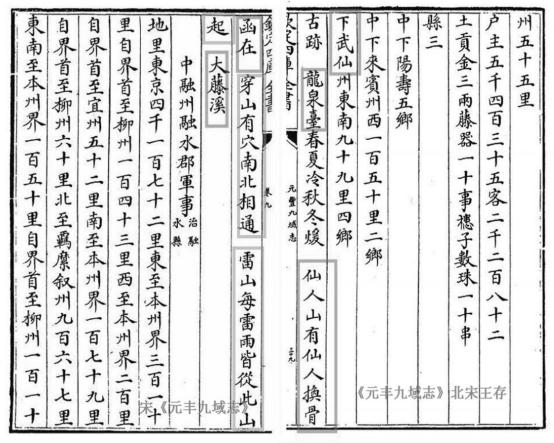 州五十五里
户主五千四百三十五客二千二百八十二
土貢金三兩藤器一十事 子數珠一十串
縣三
中下陽壽五鄉
中下來賓州西一百五十里二鄉
下武仙州東南九十九里四鄉
古跡 龍泉臺春夏冷秋冬煖 仙人山有仙人換骨
欽定四庫全書
元豐九域志
卷九
函在 穿山有穴南北相通 雷山每雷雨皆從此山
起 大藤溪
中融州融水郡軍事 治融水縣
地里東京四千一百七十二里東至本州界三百一十
里自界首至 州一百四十三里西至本州界二百里
自界首至宜州五十二里南至本州界一百七十九里
自界首至柳州六十里北至羈縻叙州九百六十七里
東南至本州界一百五十里自界首至柳州一百一十
宋《元丰九域志》
《元丰九域志》北宋王存